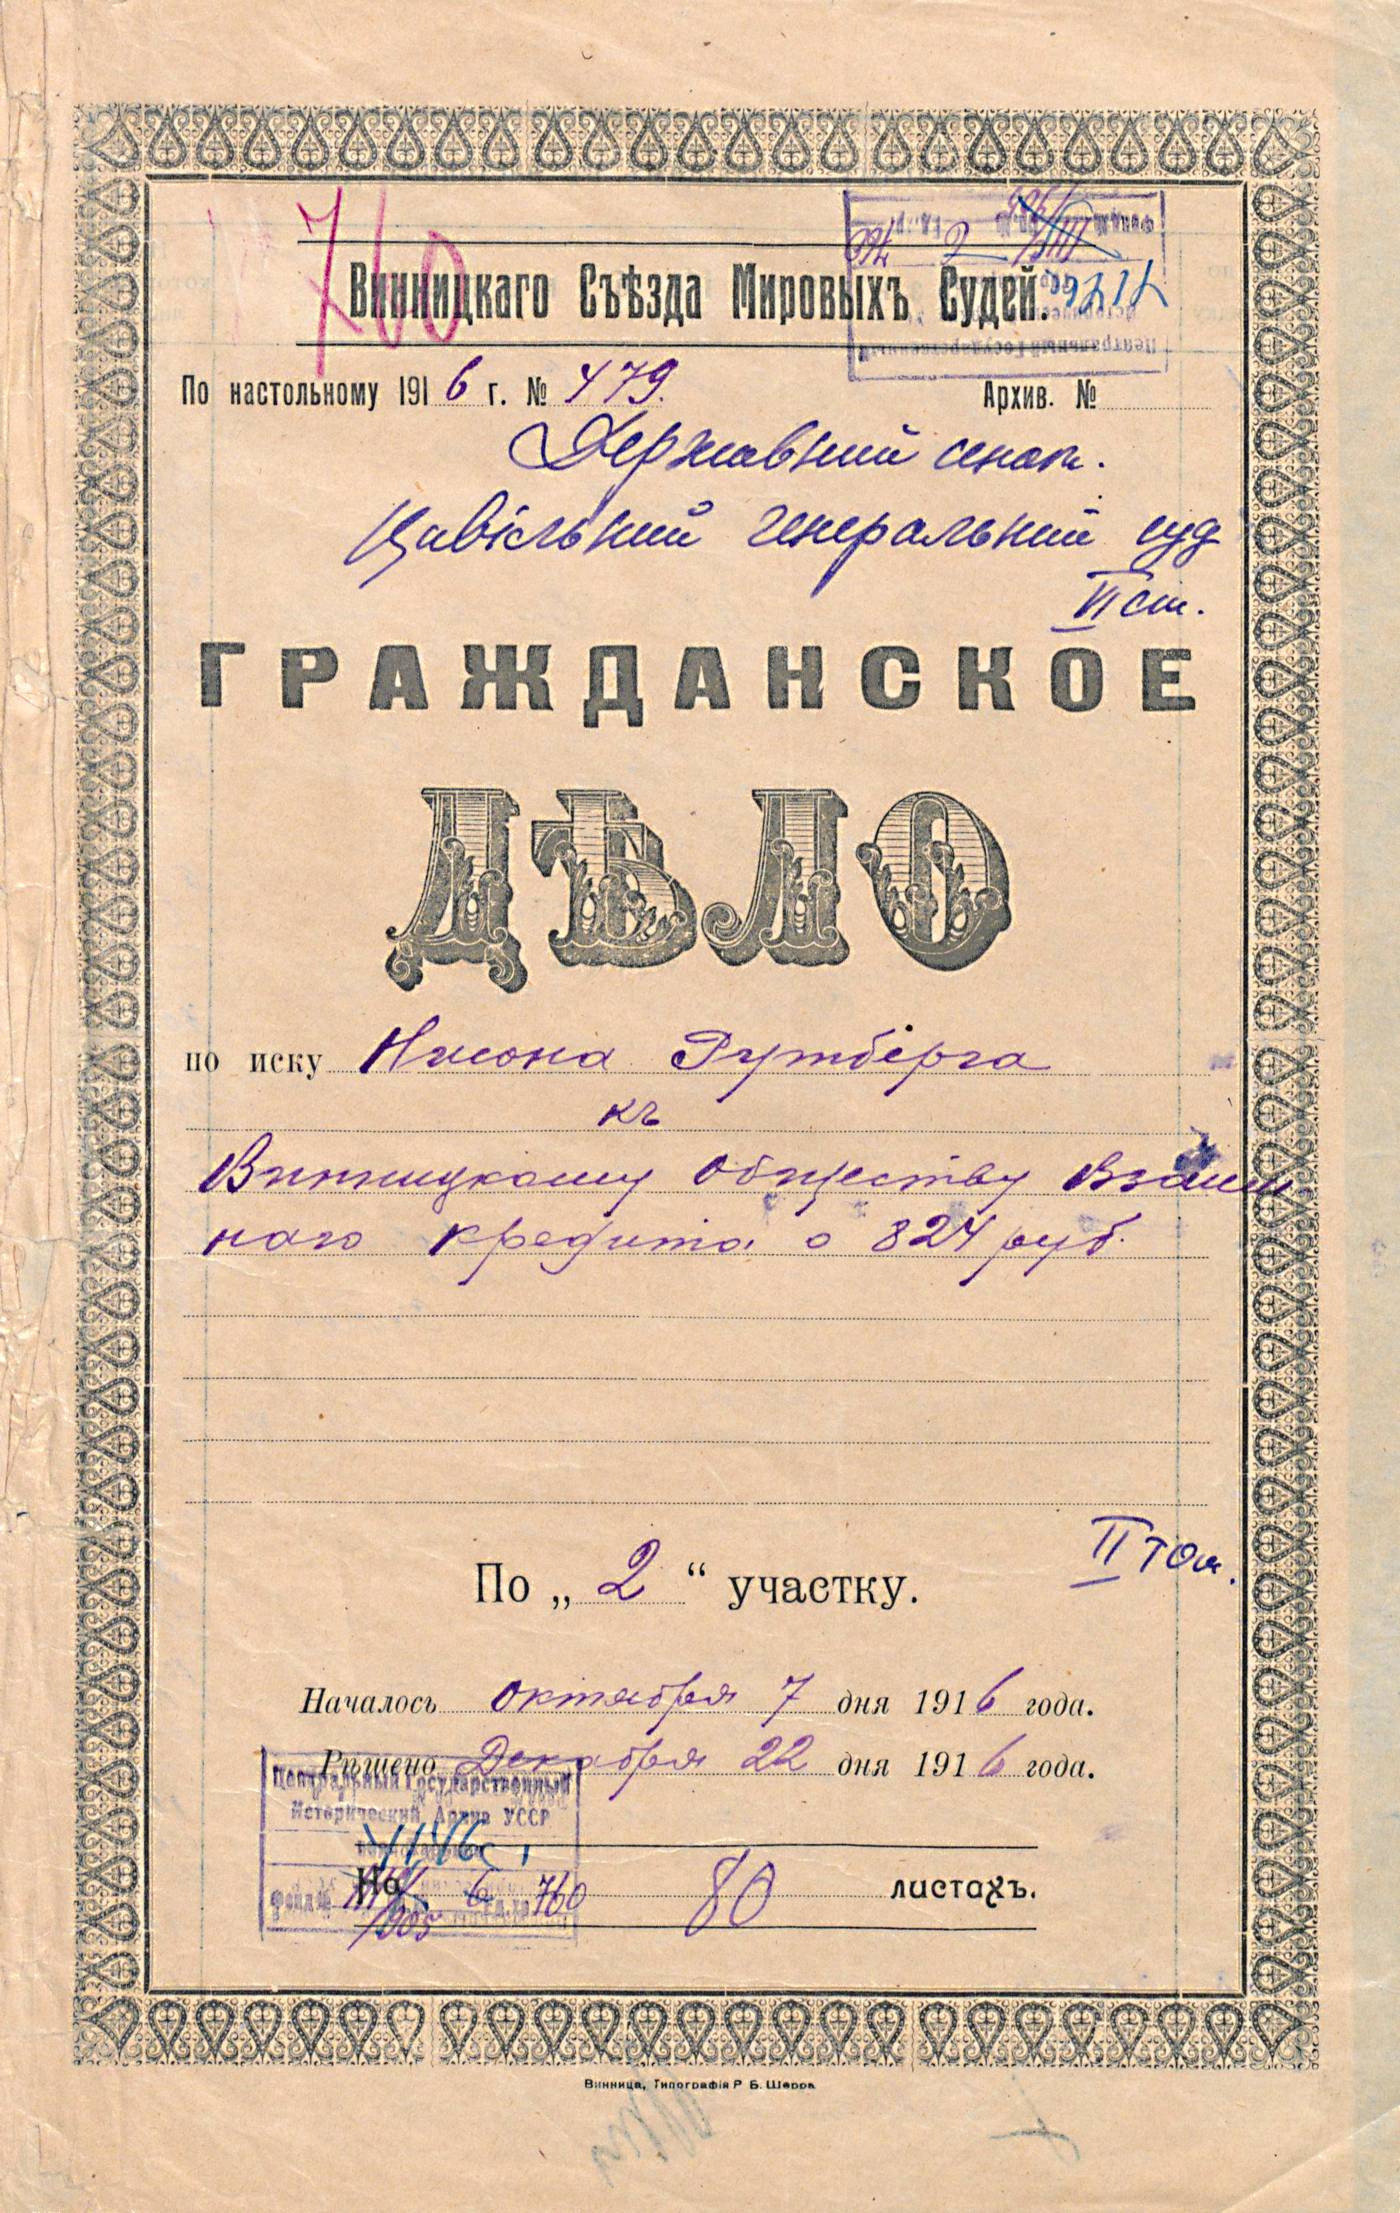 760
Винницкаго Съѣзда Мировыхъ Судей.
По настольному 1916 г. № 479.
Архив. №
Державний сенат.
Цивільний генеральний суд
VI ст.
ГРАЖДАНСКОЕ
ДѢЛО
по иску Нисона Рутберга
къ
Винницкому Обществу Взаим
наго кредита о 824 руб.
II том.
По „ 2 “ участку.
Началось октября 7 дня 1916 года.
Рѣшено Декабря 22 дня 1916 года.
Центральный Государственный
Исторический Архив УССР
На 80 листахъ.
Фонд № 6 ед. хр. 760
Винница, Типографія Р. Б. Шерра